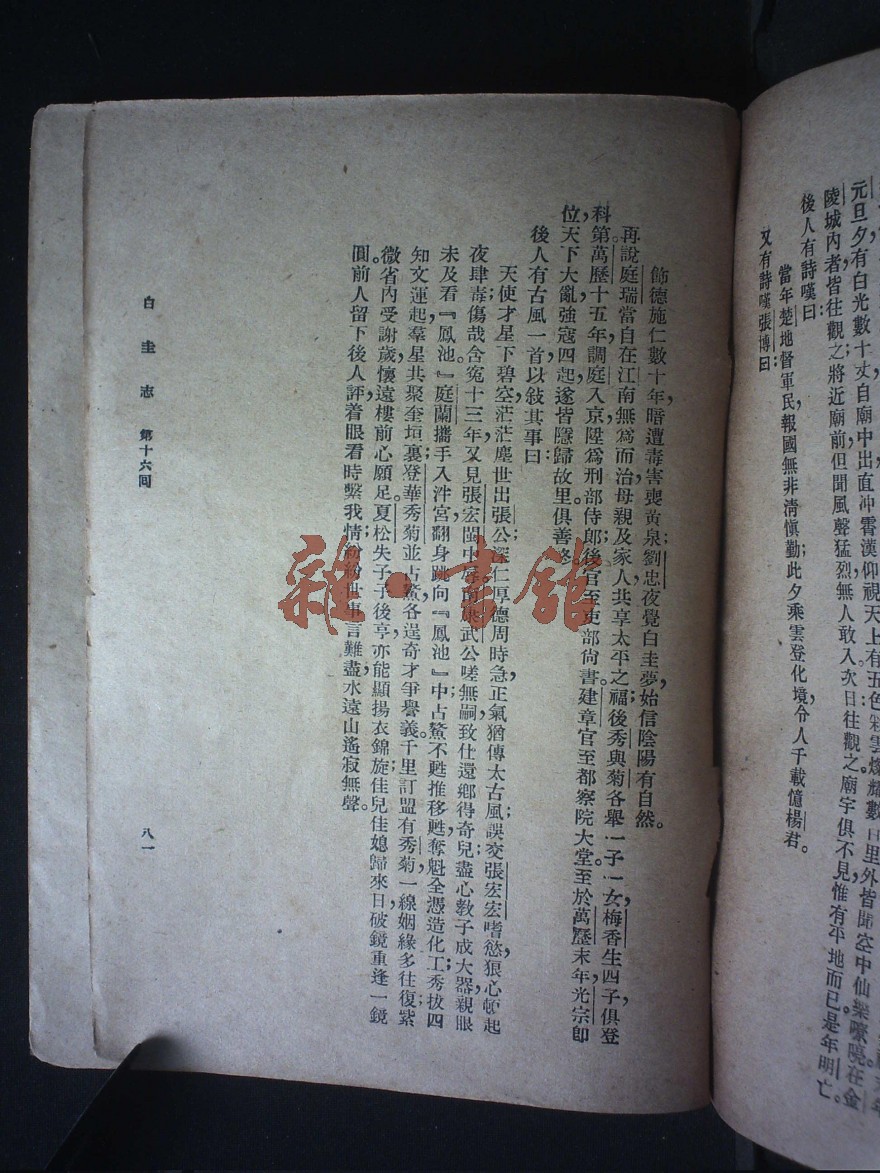 元旦夕有白光數十丈自廟中出直冲霄漢仰視天上有五色彩雲燦耀數百里外皆聞空中仙樂嘹喨在金
陵城內者皆往觀之將近廟前但聞風聲猛烈無人敢入次日往觀之廟宇俱不見惟有平地而已是年明亡。
後人有詩嘆曰：
當年楚地督軍民報國無非清愼勤；此夕乘雲登化境令人千載憶楊君。
又有詩嘆張博曰：
飾德施仁數十年，暗遭毒害喪黃泉；劉忠夜覺白圭夢，始信陰陽有自然。
再說庭瑞當自在江南無爲而治母親及家人共享太平之福。後秀與菊各舉一子一女，梅香生四子，俱登
科第。萬歷十五年，調庭入京陞爲刑部侍郎，後官至吏部尙書。建章官至都察院大堂。至於萬歷末年，光宗卽
位，天下大亂，強寇四起，遂皆隱歸故里俱善終。
後人有古風一首以敍其事曰：
天使才星下碧空，茫茫塵世出張公；深仁厚德周時急，正氣猶傳太古風；誤交張宏宏嗜慾，狼心頓起
夜肆毒；傷哉含寃十三年，又見張宏閩中辱。武公嗟無嗣，致仕還鄉得奇兒；盡心敎子成大器，親眼
未及看『鳳池。』庭蘭攜手入泮宮，翻身跳向『鳳池』中；占鰲不甦推移甦，奪魁全憑造化工；秀拔四
知文運起，羣星共聚奎垣裏；登華秀菊並占鰲，各逞奇才爭譽義。千里訂盟有秀菊，一線姻緣多往復；紫
微省內受謝歲，懷遠樓前心願足。夏松失子子後亨，亦能顯揚衣錦旋；佳兒佳媳歸來日，破鏡重逢一鏡
圓。前人留下後人評，着眼看時繫我情；紛紛世事言難盡，水遠山遙寂無聲。
白圭志　第十六回
八一
雜·書館